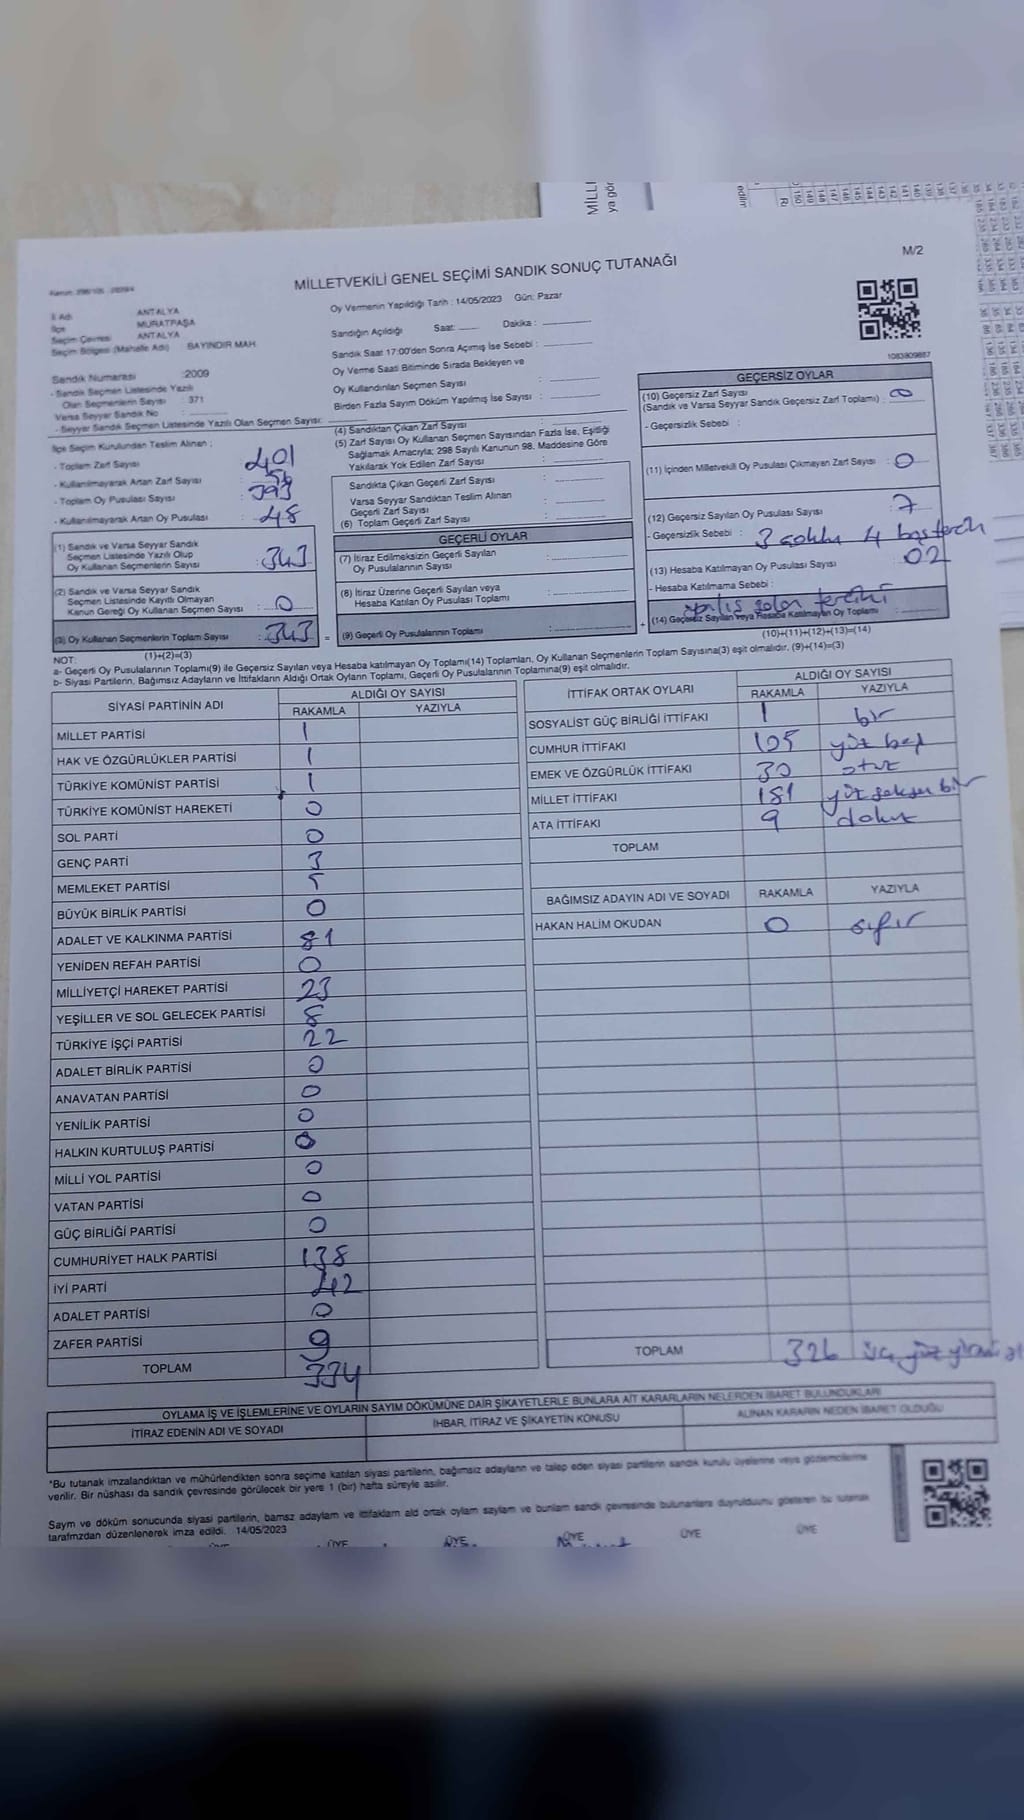 MİLLETVEKİLİ GENEL SEÇİMİ SANDIK SONUÇ TUTANAĞI
M/2
İl Adı ANTALYA
İlçe MURATPAŞA
Seçim Çevresi ANTALYA
Seçim Bölgesi (Mahalle Adı) BAYINDIR MAH.
Sandık Numarası :2009
- Sandık Seçmen Listesinde Yazılı
Olan Seçmenlerin Sayısı : 371
Varsa Seyyar Sandık No :
- Seyyar Sandık Seçmen Listesinde Yazılı Olan Seçmen Sayısı:
İlçe Seçim Kurulundan Teslim Alınan ;
- Toplam Zarf Sayısı : 401
- Kullanılmayarak Artan Zarf Sayısı :
- Toplam Oy Pusulası Sayısı : 393
- Kullanılmayarak Artan Oy Pusulası : 48
(1) Sandık ve Varsa Seyyar Sandık
Seçmen Listesinde Yazılı Olup
Oy Kullanan Seçmenlerin Sayısı : 343
(2) Sandık ve Varsa Seyyar Sandık
Seçmen Listesinde Kayıtlı Olmayan
Kanun Gereği Oy Kullanan Seçmen Sayısı : 0
(3) Oy Kullanan Seçmenlerin Toplam Sayısı : 343
(1)+(2)=(3)
Oy Vermenin Yapıldığı Tarih : 14/05/2023 Gün: Pazar
Sandığın Açıldığı Saat: Dakika :
Sandık Saat 17:00'den Sonra Açılmış İse Sebebi :
Oy Verme Saati Bitiminde Sırada Bekleyen ve
Oy Kullandırılan Seçmen Sayısı :
Birden Fazla Sayım Döküm Yapılmış İse Sayısı :
(4) Sandıktan Çıkan Zarf Sayısı :
(5) Zarf Sayısı Oy Kullanan Seçmen Sayısından Fazla İse, Eşitliği
Sağlamak Amacıyla; 298 Sayılı Kanunun 98. Maddesine Göre
Yakılarak Yok Edilen Zarf Sayısı :
Sandıkta Çıkan Geçerli Zarf Sayısı :
Varsa Seyyar Sandıktan Teslim Alınan
Geçerli Zarf Sayısı :
(6) Toplam Geçerli Zarf Sayısı :
GEÇERLİ OYLAR
(7) İtiraz Edilmeksizin Geçerli Sayılan
Oy Pusulalarının Sayısı :
(8) İtiraz Üzerine Geçerli Sayılan veya
Hesaba Katılan Oy Pusulası Toplamı :
= (9) Geçerli Oy Pusulalarının Toplamı :
1083809887
GEÇERSİZ OYLAR
(10) Geçersiz Zarf Sayısı
(Sandık ve Varsa Seyyar Sandık Geçersiz Zarf Toplamı) :
- Geçersizlik Sebebi :
(11) İçinden Milletvekili Oy Pusulası Çıkmayan Zarf Sayısı : 0
(12) Geçersiz Sayılan Oy Pusulası Sayısı : 7
- Geçersizlik Sebebi : 3 4
(13) Hesaba Katılmayan Oy Pusulası Sayısı : 02
- Hesaba Katılmama Sebebi :
+ (14) Geçersiz Sayılan veya Hesaba Katılmayan Oy Toplamı :
(10)+(11)+(12)+(13)=(14)
NOT:
a- Geçerli Oy Pusulalarının Toplamı(9) ile Geçersiz Sayılan veya Hesaba katılmayan Oy Toplamı(14) Toplamları, Oy Kullanan Seçmenlerin Toplam Sayısına(3) eşit olmalıdır. (9)+(14)=(3)
b- Siyasi Partilerin, Bağımsız Adayların ve İttifakların Aldığı Ortak Oyların Toplamı, Geçerli Oy Pusulalarının Toplamına(9) eşit olmalıdır.
SİYASİ PARTİNİN ADI ALDIĞI OY SAYISI
RAKAMLA YAZIYLA
MİLLET PARTİSİ 1
HAK VE ÖZGÜRLÜKLER PARTİSİ 1
TÜRKİYE KOMÜNİST PARTİSİ 1
TÜRKİYE KOMÜNİST HAREKETİ 0
SOL PARTİ 0
GENÇ PARTİ 3
MEMLEKET PARTİSİ 5
BÜYÜK BİRLİK PARTİSİ 0
ADALET VE KALKINMA PARTİSİ 81
YENİDEN REFAH PARTİSİ 0
MİLLİYETÇİ HAREKET PARTİSİ 23
YEŞİLLER VE SOL GELECEK PARTİSİ 8
TÜRKİYE İŞÇİ PARTİSİ 22
ADALET BİRLİK PARTİSİ 0
ANAVATAN PARTİSİ 0
YENİLİK PARTİSİ 0
HALKIN KURTULUŞ PARTİSİ 0
MİLLİ YOL PARTİSİ 0
VATAN PARTİSİ 0
GÜÇ BİRLİĞİ PARTİSİ 0
CUMHURİYET HALK PARTİSİ 138
İYİ PARTİ 42
ADALET PARTİSİ 0
ZAFER PARTİSİ 9
TOPLAM 334
İTTİFAK ORTAK OYLARI ALDIĞI OY SAYISI
RAKAMLA YAZIYLA
SOSYALİST GÜÇ BİRLİĞİ İTTİFAKI 1 bir
CUMHUR İTTİFAKI 105 yüz beş
EMEK VE ÖZGÜRLÜK İTTİFAKI 30 otuz
MİLLET İTTİFAKI 181 yüz seksen bir
ATA İTTİFAKI 9 dokuz
TOPLAM
BAĞIMSIZ ADAYIN ADI VE SOYADI RAKAMLA YAZIYLA
HAKAN HALİM OKUDAN 0 sıfır
TOPLAM 326 üç yüz yirmi
OYLAMA İŞ VE İŞLEMLERİNE VE OYLARIN SAYIM DÖKÜMÜNE DAİR ŞİKAYETLERLE BUNLARA AİT KARARLARIN NELERDEN İBARET BULUNDUKLARI
İTİRAZ EDENİN ADI VE SOYADI İHBAR, İTİRAZ VE ŞİKAYETİN KONUSU ALINAN KARARIN NEDEN İBARET OLDUĞU
*Bu tutanak imzalandıktan ve mühürlendikten sonra seçime katılan siyasi partilerin, bağımsız adayların ve talep eden siyasi partilerin sandık kurulu üyelerine veya gözlemcilerine
verilir. Bir nüshası da sandık çevresinde görülecek bir yere 1 (bir) hafta süreyle asılır.
Sayım ve döküm sonucunda siyasi partilerin, bamsz adaylam ve ittifaklam ald ortak oylam saylam ve bunlam sandk çevresinde bulunanlara duyurulduunu gösteren bu tutanak
tarafmzdan düzenlenerek imza edildi. 14/05/2023
ÜYE ÜYE ÜYE ÜYE ÜYE